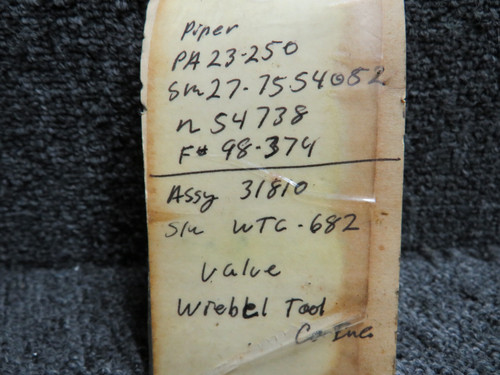 Piper
PA 23-250
S/N 27-7554082
N 54738
F# 98-374
Assy 31810
S/N WTC-682
Valve
Wiebel Tool
Co Inc.